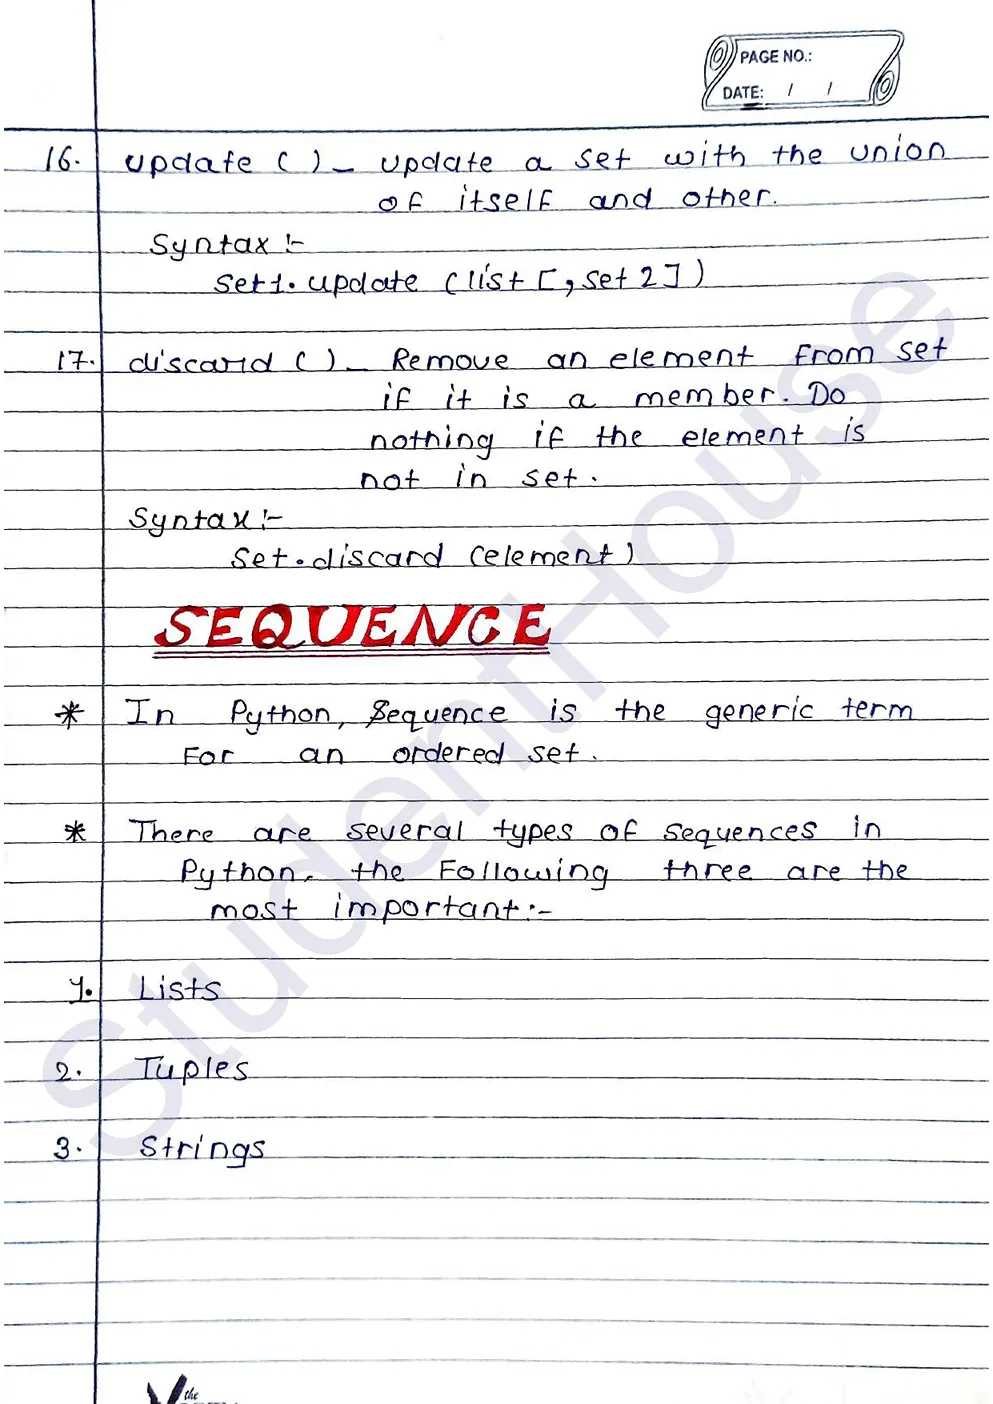 PAGE NO.:
DATE: / /
16. update ( ) - update a set with the union
of itself and other.
Syntax :-
set1. update (list [, set 2] )
17. discard ( ) - Remove an element from set
if it is a member. Do
nothing if the element is
not in set.
Syntax :-
set.discard (element)
SEQUENCE
* In Python, Sequence is the generic term
for an ordered set.
* There are several types of sequences in
Python, the following three are the
most important :-
1. Lists
2. Tuples
3. Strings
StudentHouse
the